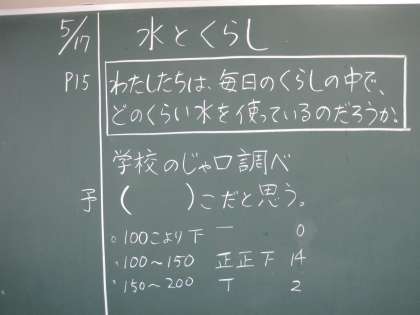 5/17 水とくらし
P15 わたしたちは、毎日のくらしの中で、
どのくらい水を使っているのだろうか。
学校のじゃ口調べ
予 (　　)こだと思う。
。100こより下 一 0
。100～150 正正下 14
。150～200 T 2